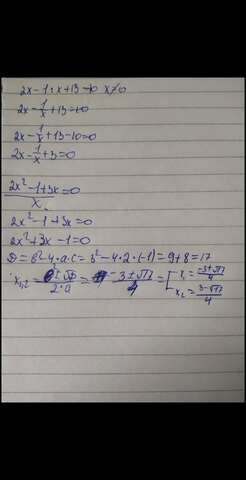 2x - 1 : x + 13 = 10 x ≠ 0
2x - 1/x + 13 = 10
2x - 1/x + 13 - 10 = 0
2x - 1/x + 3 = 0
(2x² - 1 + 3x)/x = 0
2x² - 1 + 3x = 0
2x² + 3x - 1 = 0
D = b² - 4·a·c = 3² - 4·2·(-1) = 9 + 8 = 17
x₁,₂ = (-b ± √D)/(2·a) = (-3 ± √17)/4 = [ x₁ = (-3 + √17)/4
x₂ = (3 - √17)/4